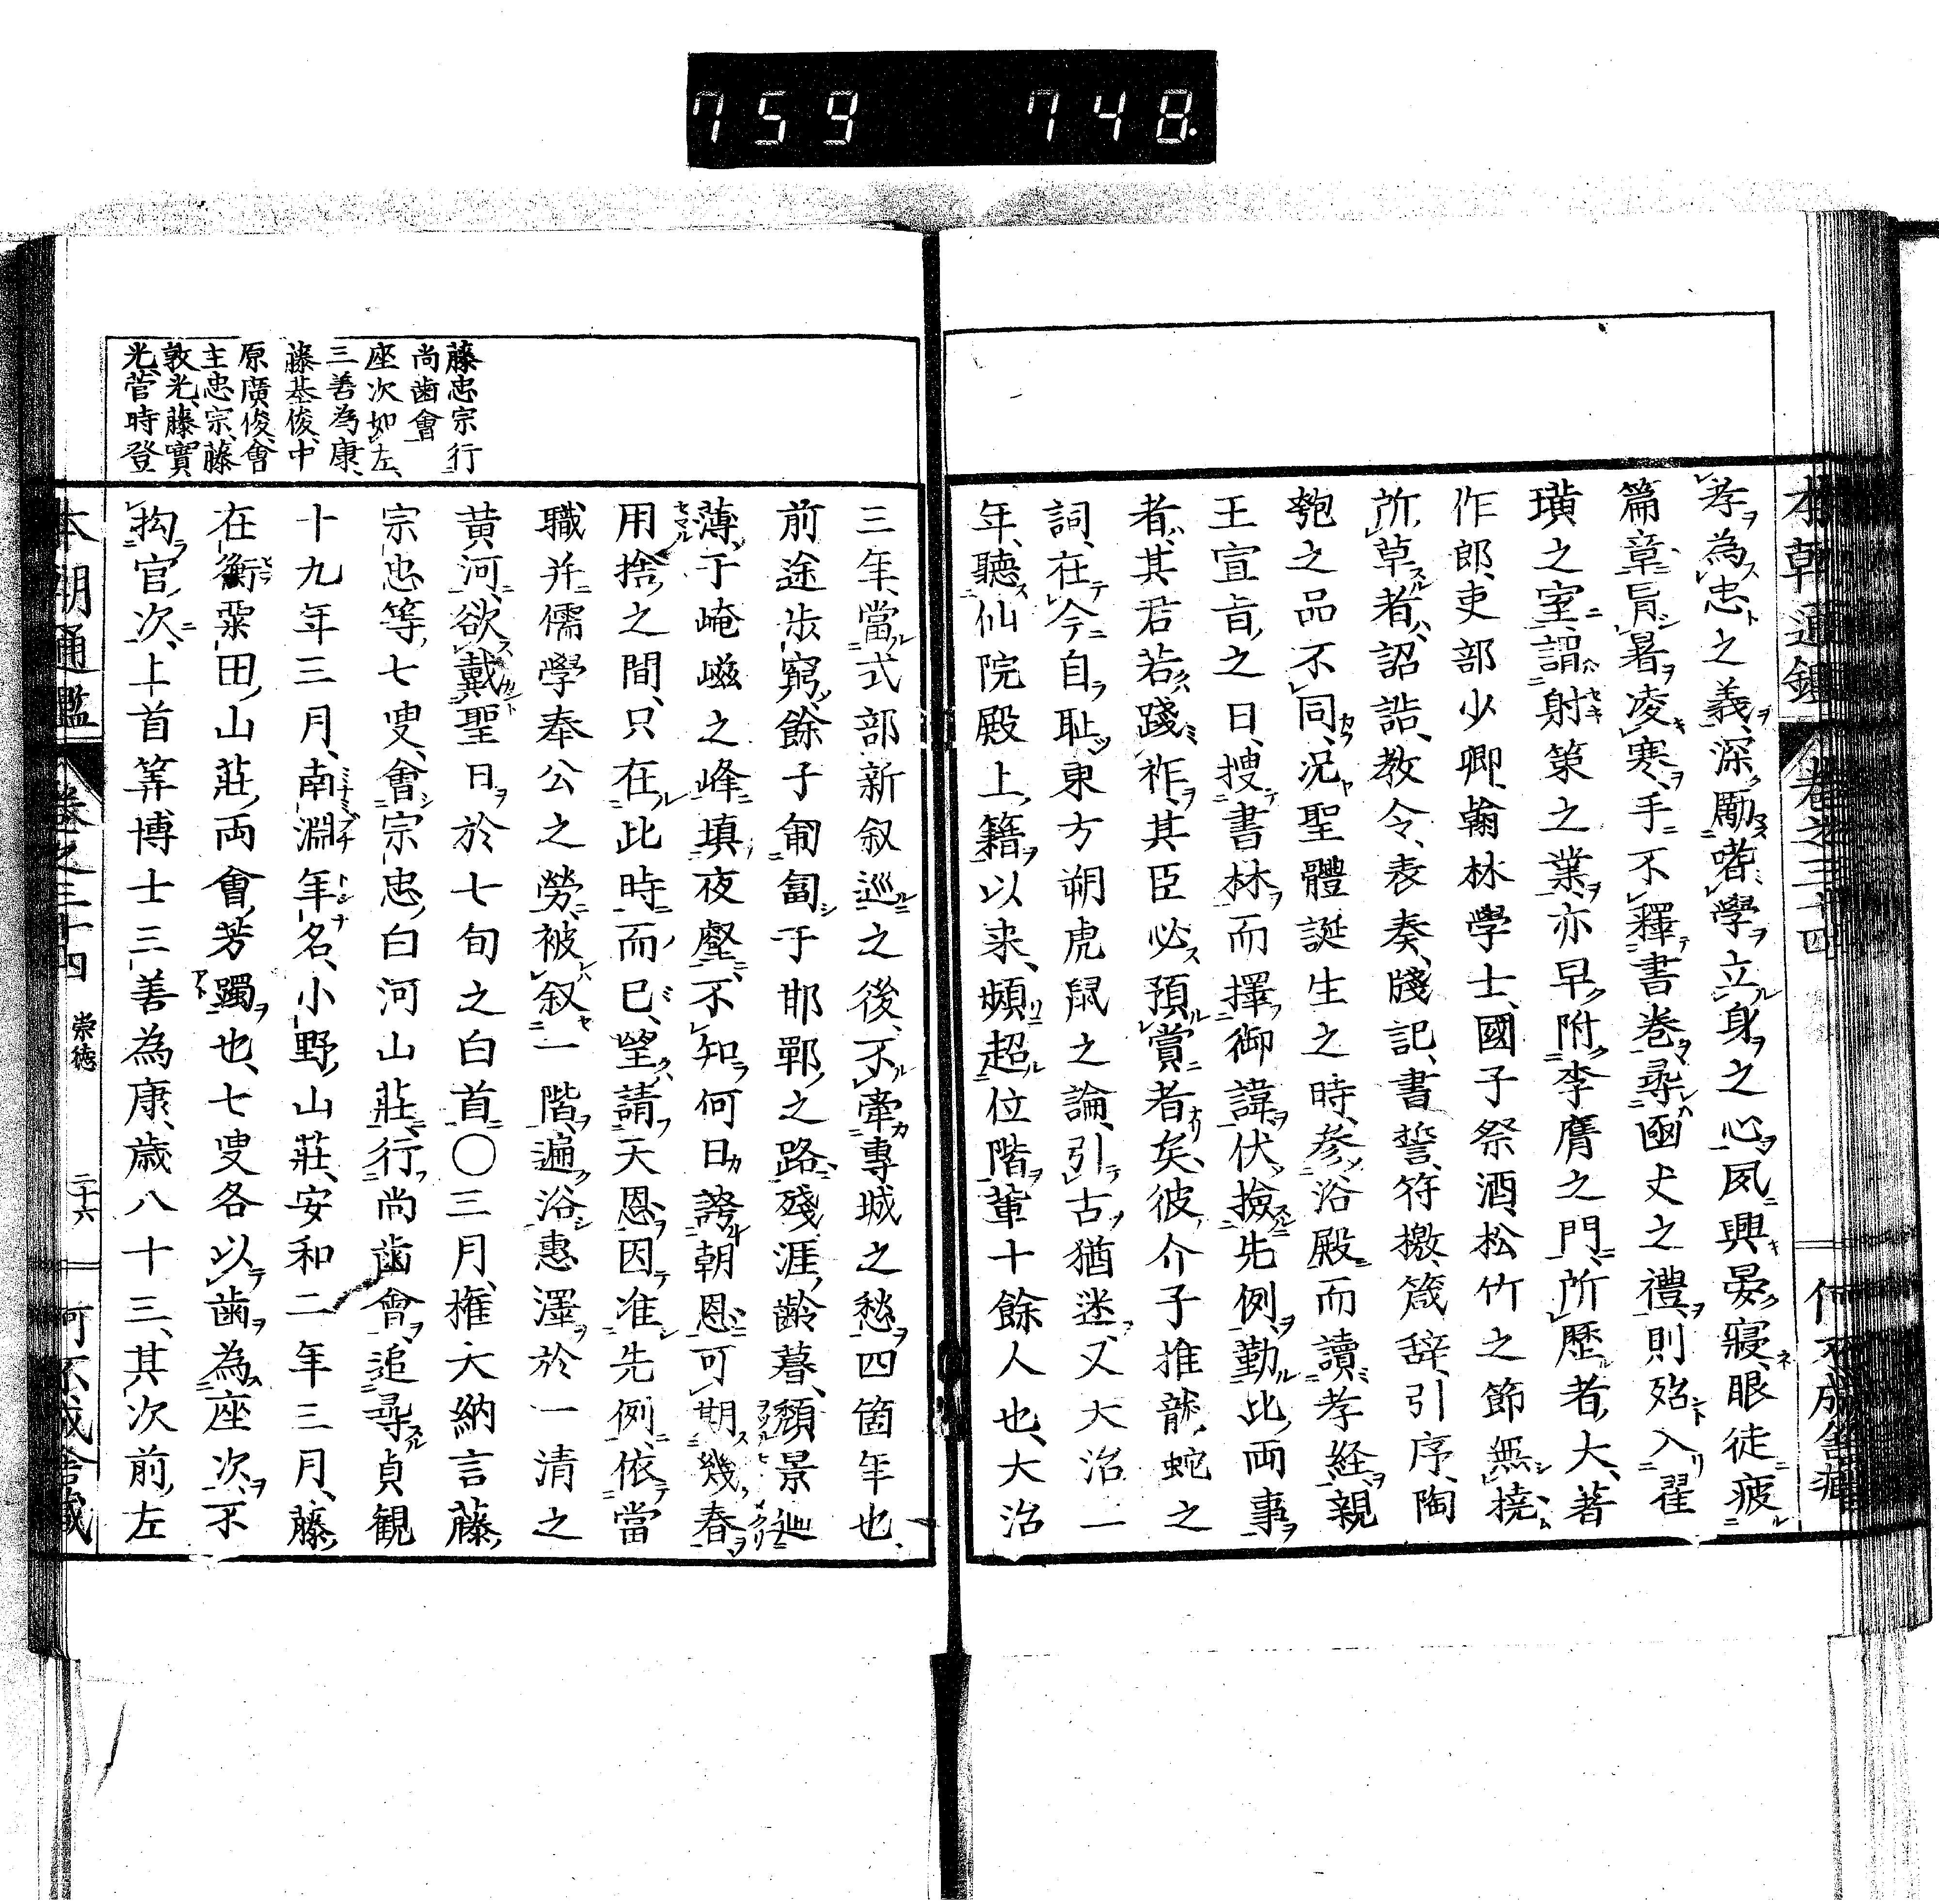 759 748.
孝為忠之義深勵嗜學立身之心夙興晏寢眼徒疲
篇章旨暑凌寒手不釋書巻尋凾丈之禮則殆入翟
璜之室謂射策之業亦早附李膺之門所歷者大著
作郎吏部少卿翰林學士國子祭酒松竹之節無撓
所草者詔誥教令表奏牋記書誓符檄箴辞引序陶
匏之品不同況聖體誕生之時参浴殿而讀孝経親
王宣旨之日搜書林而擇御諱伏撿先例勤此両事
者其君若踐祚其臣必預賞者矣彼介子推龍蛇之
詞在今自恥東方朔虎鼠之論引古猶迷又大治一
年聽仙院殿上籍以来頻超位階輩十餘人也大治
三年當式部新叙巡之後不牽專城之愁四箇年也
前途歩窮餘子匍匐于邯鄲之路殘涯齡暮頽景廻
薄于崦嵫之峰填夜壑不知何日誇朝恩可期幾春
用捨之間只在此時而已望請天恩因准先例依當
職并儒學奉公之勞被叙一階遍浴惠澤於一清之
黄河欲戴聖日於七旬之白首〇三月權大納言藤
宗忠等七叟會宗忠白河山莊行尚歯會追尋貞観
十九年三月南淵年名小野山莊安和二年三月藤
在衡粟田山莊両會芳躅也七叟各以歯為座次不
拘官次上首筭博士三善為康歳八十三其次前左
藤忠宗行
尚歯會
座次如左
三善為康
藤基俊中
原廣俊會
主忠宗藤
敦光藤實
光菅時登
本朝通鑑 巻之三十四 崇徳 二十六